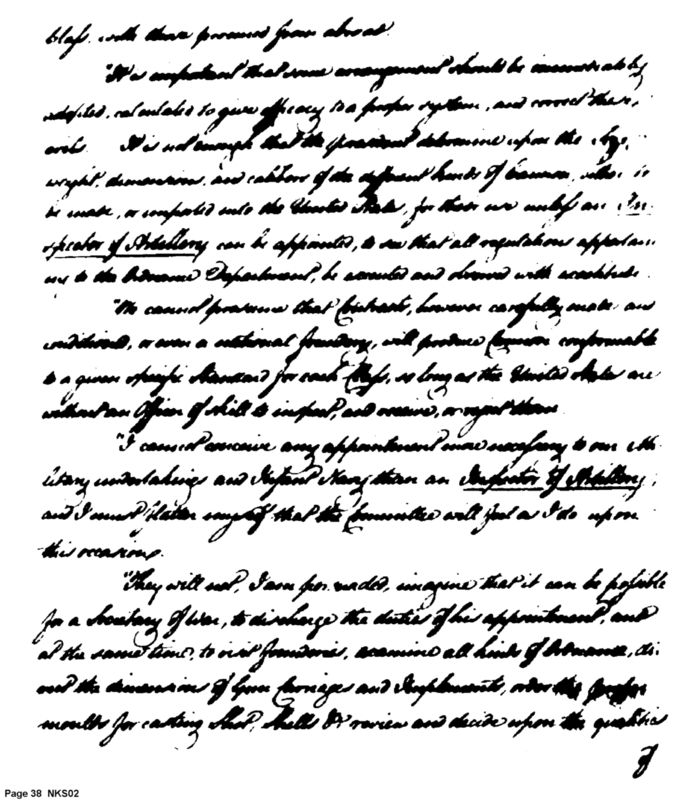 Class. with those procured from abroad.
"It is important that some arrangement should be immediately
adopted, calculated to give efficacy to a proper system, and correct these
evils. It is not enough that the President determine upon the size,
weight, dimensions, and calibers of the different kinds of Cannon, to
be made, or imported into the United States, for these use unless an In
spector of Artillery can be appointed, to see that all regulations appertain
ing to the Ordnance Department, be executed and observed with exactitude.
"We cannot presume that Contracts, however carefully made and
conditioned, or even a national foundery, will produce Cannon conformable
to a given specific Standard for each Class, so long as the United States are
without an Officer of skill to inspect, and receive, or reject them.
"I cannot conceive any appointment more necessary to our Mi
litary undertakings and Infant Navy than an Inspector of Artillery;
and I must flatter myself that the Committee will feel as I do upon
this occasion.
"They will not, I am persuaded, imagine that it can be possible
for a Secretary of War, to discharge the duties of his appointment, and
at the same time, to visit founderies, examine all kinds of Ordnance, di
rect the dimensions of Gun Carriages and Implements, order the proper
moulds for casting Shot, Shells &c review and decide upon the qualities
of
Page 38 NKS02